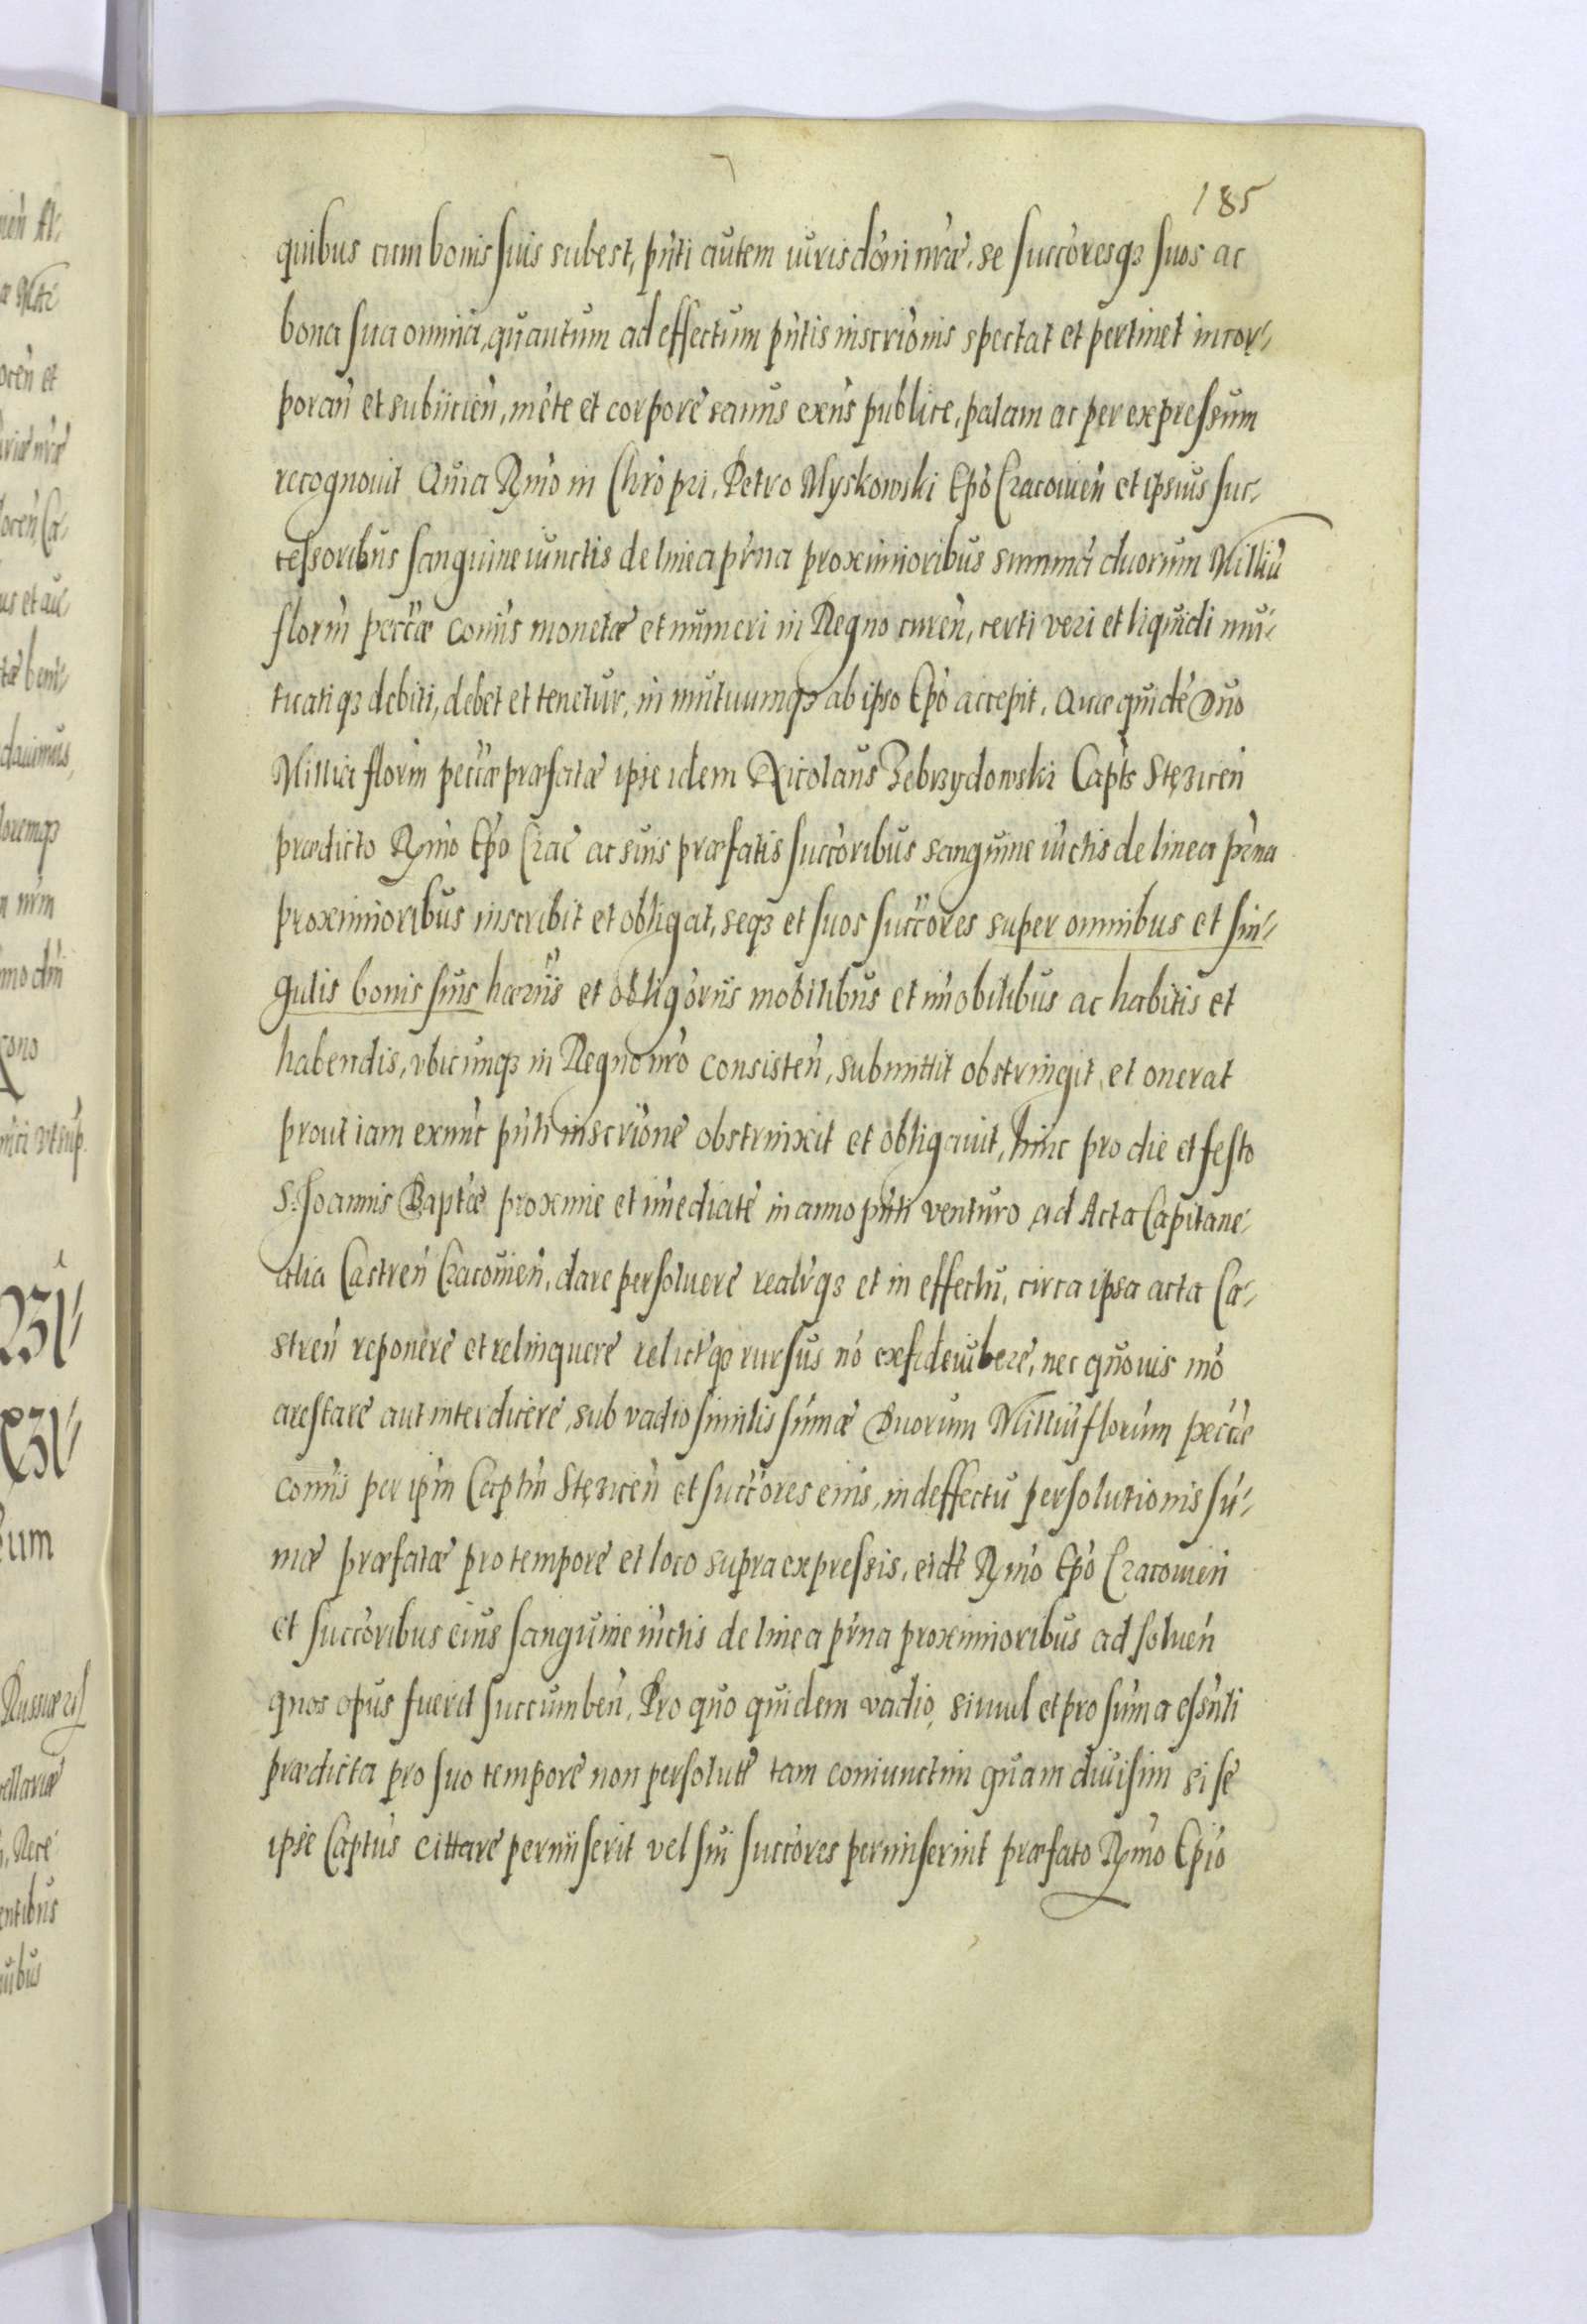 185
quibus cum bonis suis subest, pnti autem iurisdoni nrae, se succoresq3 suos ac
bona sua omnia, quantum ad effectum pntis inscrionis spectat et pertinet incor-
poran et subiicien, mete et corpore sanus exns publice, palam ac per expressum
recognovit Quia Rmo in Chro pri, Petro Myskowski Epo Cracovien et ipsius suc-
cessoribus sanguine iunctis de linea prna proximioribus summa duorum Milliu
florin peccae comis monetae et numeri in Regno curen, certi veri et liquidi mu-
tuatiq3 debiti, debet et tenetur, in mutuumq3 ab ipso Epo accepit. Quae quide Duo
Millia florin peccae praefatae ipse idem Nicolaus Zebrzydowski Capts Stęzicen
praedicto Rmo Epo Crac ac suis praefatis succoribus sanguine iuctis de linea prna
proximioribus inscribit et obligat, seq3 et suos succores super omnibus et sin-
gulis bonis suis haeriis et obligoriis mobilibus et imobilibus ac habitis et
habendis, vbicunq3 in Regno nro consisten, submittit obstringit et onerat
prout iam exnuc pnti inscrione obstrinxit et obligavit, hinc pro die et festo
S. Joannis Baptae proxime et imediate in anno pnti venturo ad Acta Capitane-
alia Castren Cracovien, dare persolvere realrq3 et in effectu, circa ipsa acta Ca-
stren reponere et relinquere relictq3 rursus no exfideiubere, nec quovis mo
arestare aut interdicere, sub vadio similis sumae Duorum Milliu florum peccae
comis per ipm Captm Stęzicen et succores eius, in deffectu persolutionis su-
mae praefatae pro tempore et loco supra expressis, eidē Rmo Epo Cracovien
et succoribus eius sanguine iuctis de linea prna proximioribus ad solven
quos opus fuerit succumben. Pro quo quidem vadio, simul et pro suma essnti
praedicta pro suo tempore non persolute tam coniunctim quam divisim si se
ipse Captus cittare permiserit vel sui succores permiserint praefato Rmo Epio